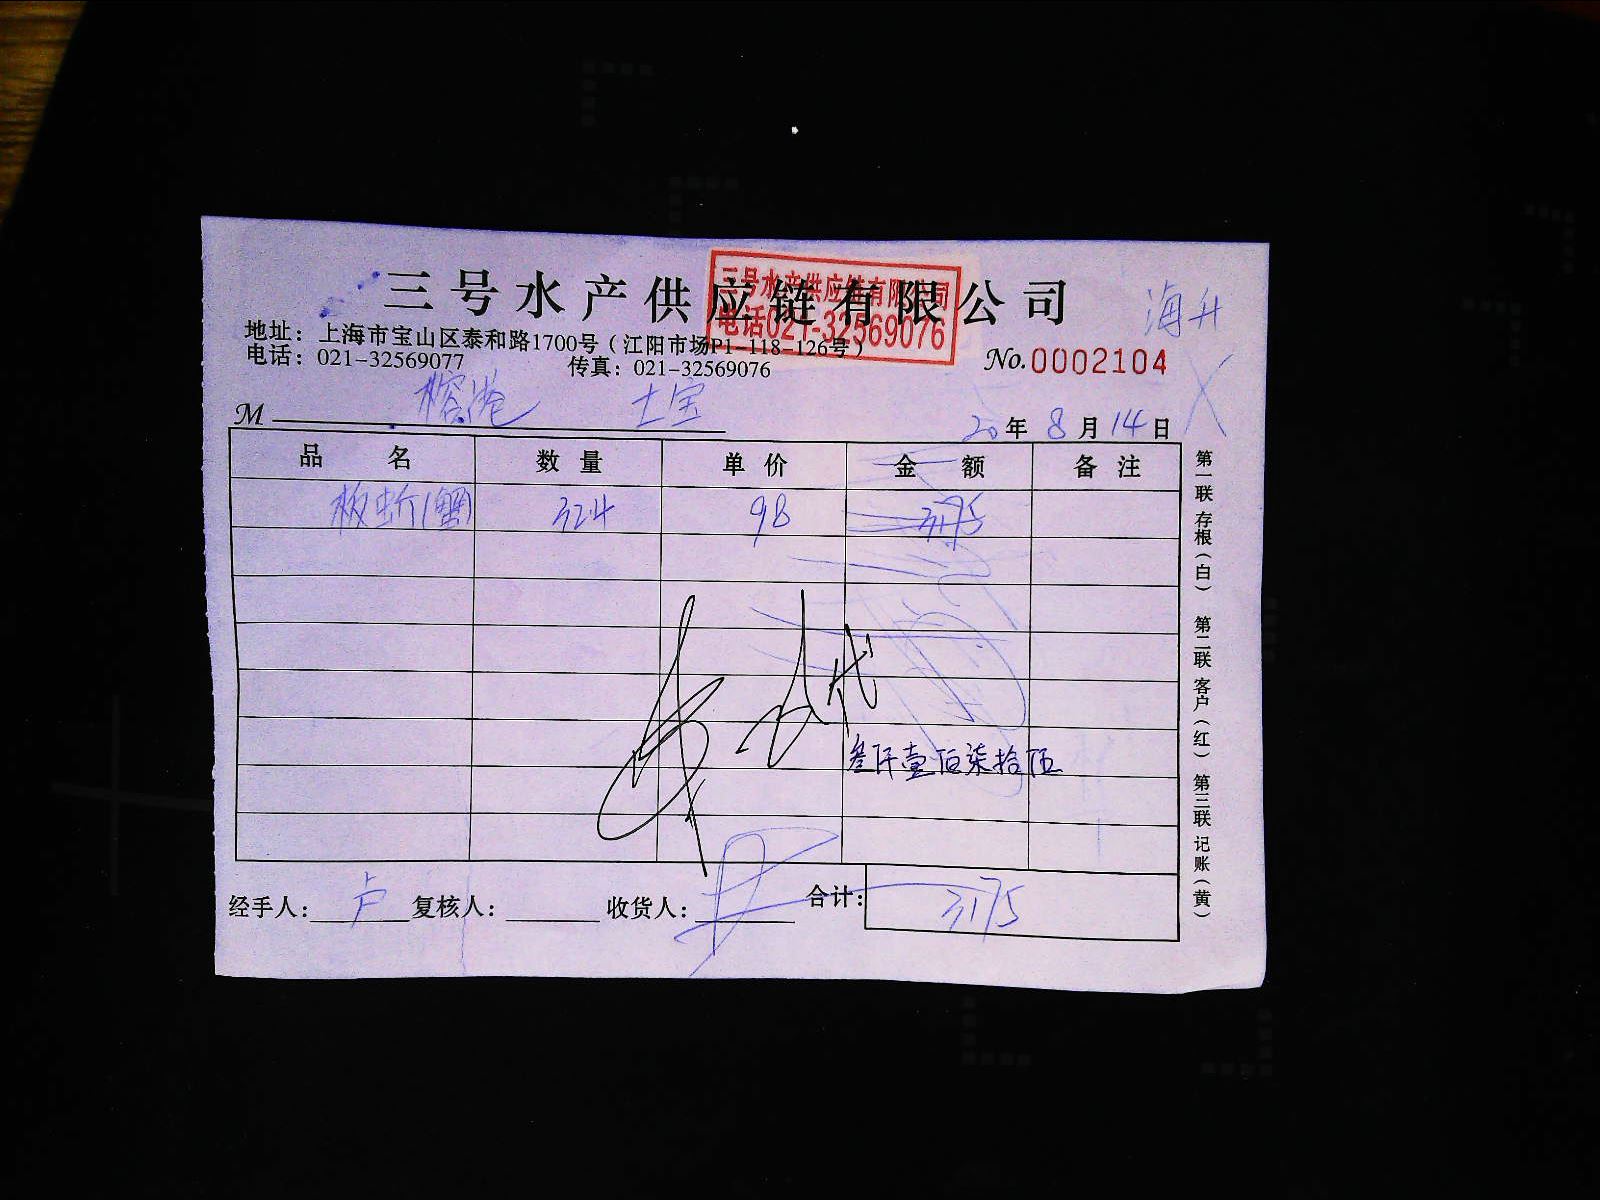 三号水产供应链有限公司
三号水产供应链有限公司
电话021-32569076
海升
地址：上海市宝山区泰和路1700号（江阳市场P1-118-126号）
电话：021-32569077 传真：021-32569076
No.0002104
M 榕港 士宝
20年 8月 14日
品 名 数 量 单 价 金 额 备 注
324 98 3175
叁仟壹佰柒拾伍
经手人：卢 复核人： 收货人： 合计：3175
第一联 存根（白） 第二联 客户（红） 第三联 记账（黄）